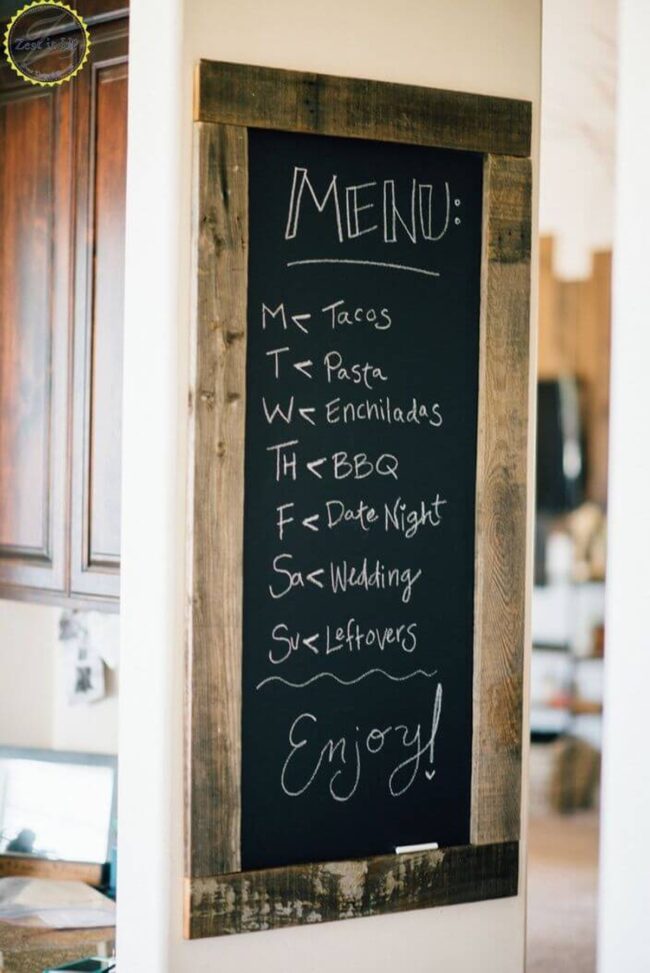 MENU:
M< Tacos
T< Pasta
W< Enchiladas
TH< BBQ
F< Date Night
Sa< Wedding
Su< Leftovers
Enjoy!